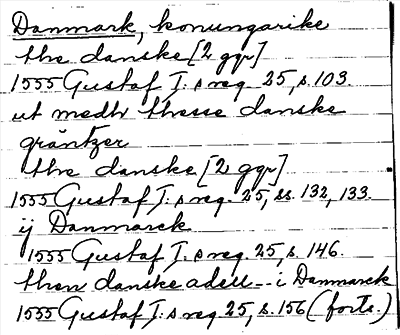 Danmark, konungarike
the danske [2 ggr]
1555 Gustaf I:s reg. 25, s. 103.
ut medh thesse danske
gräntzer
the danske [2 ggr]
1555 Gustaf I:s reg. 25, ss. 132, 133.
ij Danmarck
1555 Gustaf I:s reg. 25, s. 146.
then danske adell - - i Danmarck
1555 Gustaf I:s reg. 25, s. 156 (forts.)